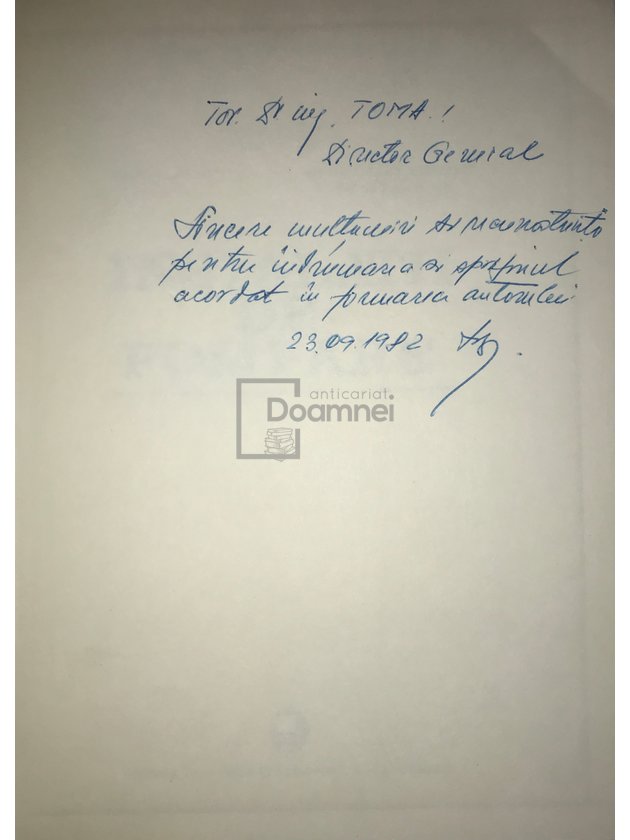 Tov. Dr ing. TOMA!
Director General
Sincere mulțumiri și recunoștință
pentru îndrumarea și sprijinul
acordat în formarea autorului
23.09.1982
anticariat
Doamnei